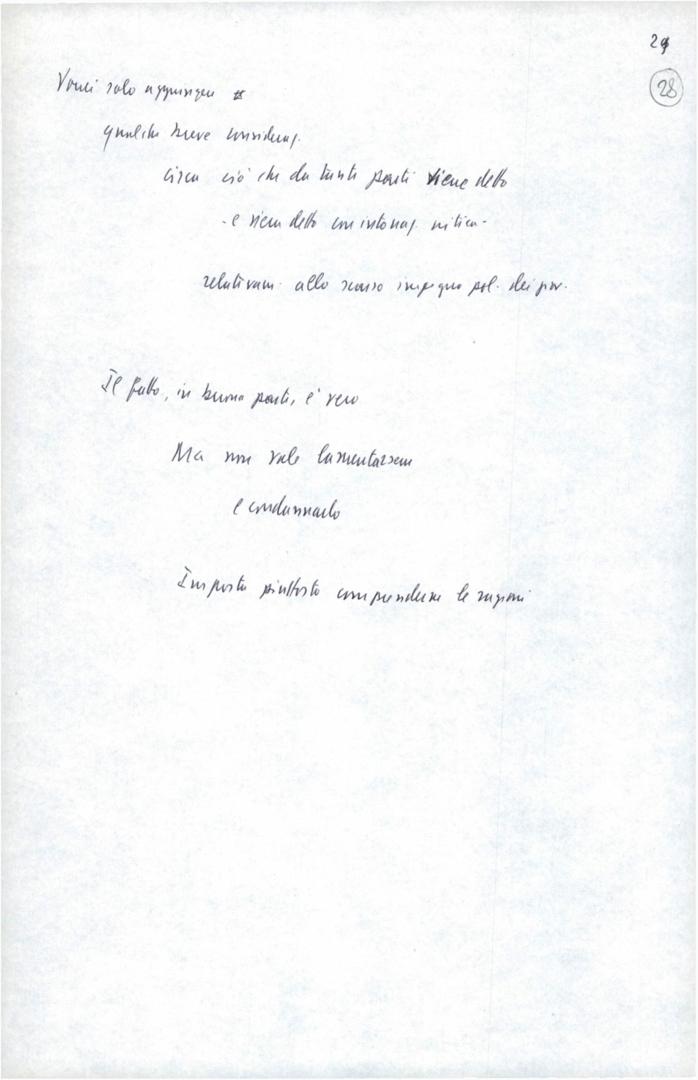 29
28
Vorrei solo aggiungere
qualche breve consideraz.
circa ciò che da tante parti viene detto
- e viene detto con intonaz. critica -
relativam. allo scarso impegno pol. dei giov.
Il fatto, in buona parte, è vero
Ma non vale lamentarsene
e condannarlo
Importa piuttosto comprenderne le ragioni